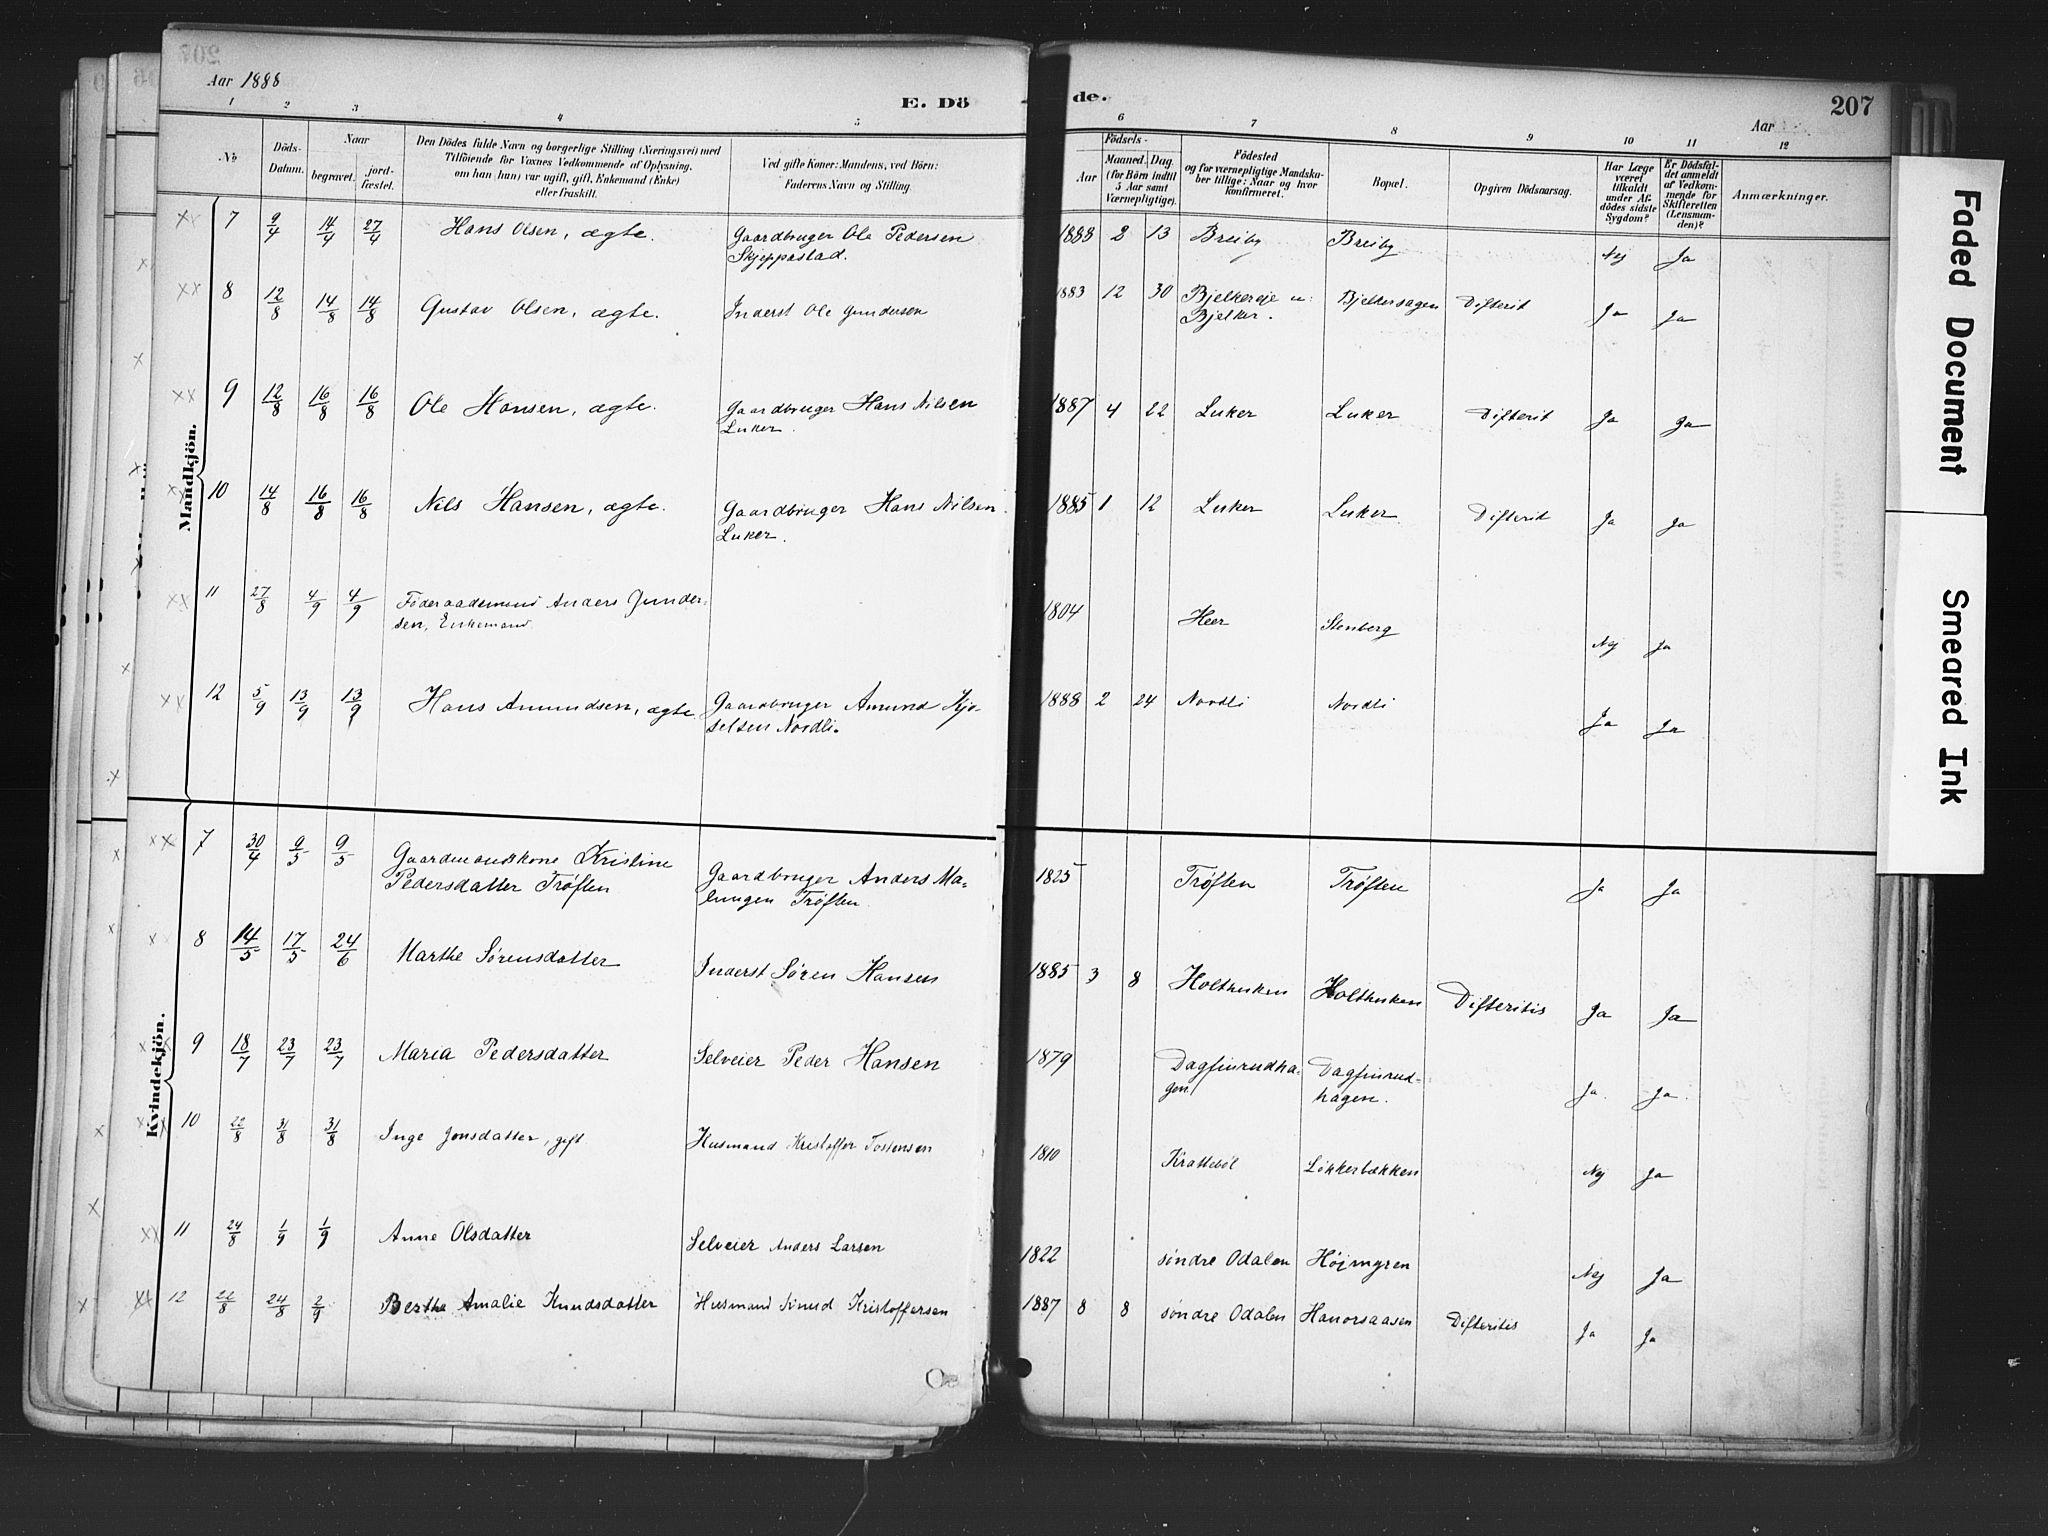 Aar 1888
E. Dö
de.
207
Aar
1 2 3 4 5 6 7 8 9 10 11 12
№
Döds-Datum.
Naar
begravet.
jord-fæstet.
Den Dödes fulde Navn og borgerlige Stilling (Næringsvei) med
Tilföiende for Voxnes Vedkommende af Oplysning,
om han (hun) var ugift, gift, Enkemand (Enke)
eller fraskilt.
Ved gifte Koner: Mandens, ved Börn:
Faderens Navn og Stilling.
Födsels-
Aar
Maaned. Dag.
(for Börn indtil
5 Aar samt
Værnepligtige).
Födested
og for værnepligtige Mandska-
ber tillige: Naar og hvor
konfirmeret.
Bopæl.
Opgiven Dödsaarsag.
Har Læge
været
tilkaldt
under Af-
dödes sidste
Sygdom?
Er Dödsfal-
det anmeldt
af Vedkom-
mende for
Skifteretten
(Lensman-
den)?
Anmærkninger.
Mandkjön.
7 9/4 14/4 27/4 Hans Olsen, ægte. Gaardbruger Ole Pedersen 1888 2 13 Breiby Breiby Nej Ja
Skjeppastad.
8 12/8 14/8 14/8 Gustav Olsen, ægte. Inderst Ole Gundersen 1883 12 30 Bjelkereje u: Bjelkersagen Difterit Ja Ja
Bjelker.
9 12/8 16/8 16/8 Ole Hansen, ægte. Gaardbruger Hans Nilsen 1887 4 22 Luker Luker Difterit Ja Ja
Luker.
10 14/8 16/8 16/8 Nils Hansen, ægte. Gaardbruger Hans Nilsen 1885 1 12 Luker Luker Difterit Ja Ja
Luker.
11 27/8 4/9 4/9 Føderaadsmand Anders Gunder- 1804 Heer Stenberg Nej Ja
sen, Enkemand
12 5/9 13/9 13/9 Hans Amundsen, ægte Gaardbruger Amund Kjø- 1888 2 24 Nordli Nordli Ja Ja
selsen Nordli.
Kvindekjön.
7 30/4 9/5 9/5 Gaardmandskone Kristine Gaardbruger Anders Ma- 1825 Trøften Trøften Ja Ja
Pedersdatter Trøften lungen Trøften
8 14/5 17/5 24/6 Marthe Sørensdatter Inderst Søren Hansen 1885 3 8 Holthusken Holthusken Difteritis Ja Ja
9 18/7 23/7 23/7 Maria Pedersdatter Selveier Peder Hansen 1879 Dagfinrudha- Dagfinrud- Ja. Ja.
gen hagen.
10 22/8 31/8 31/8 Inge Jonsdatter, gift Husmand Kristoffer Tostensen 1810 Krattebøl Løkkerbækken Nej Ja
11 24/8 1/9 1/9 Anne Olsdatter Selveier Anders Larsen 1822 søndre Odalen Højmyren Nej Ja
12 22/8 24/8 2/9 Berthe Amalie Knudsdatter Husmand Knud Kristoffersen 1887 8 8 søndre Odalen Hanorsaasen Difteritis Ja Ja
Faded Document
Smeared Ink